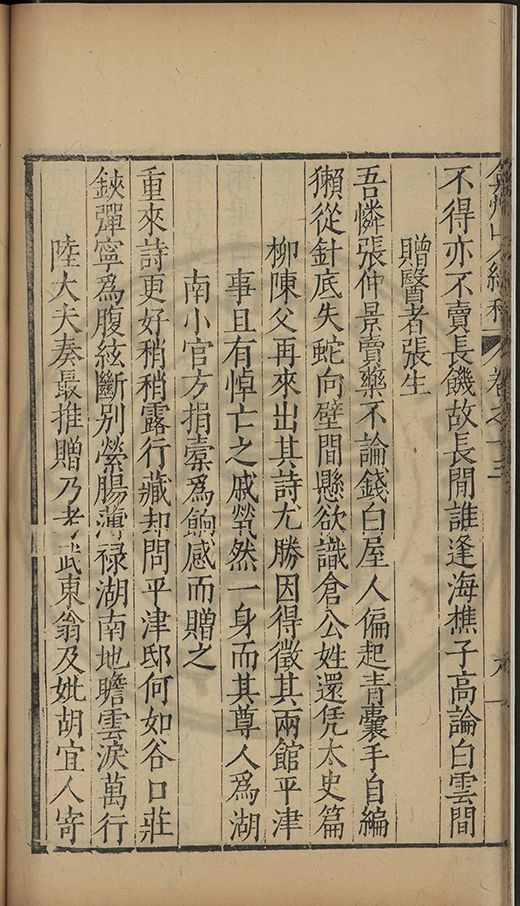 弇州山人續稿 卷之十三 九
不得亦不賣長饑故長閒誰逢海樵子高論白雲間
贈醫者張生
吾憐張仲景賣藥不論錢白屋人偏起青囊手自編
獺從針底失蛇向壁間懸欲識倉公姓還凭太史篇
柳陳父再來出其詩尤勝因得徵其兩館平津
事且有悼亡之戚煢然一身而其尊人爲湖
南小官方捐橐爲餉感而贈之
重來詩更好稍稍露行藏却問平津邸何如谷口莊
鋏彈寧爲腹絃斷別縈腸薄祿湖南地瞻雲淚萬行
陸大夫奏最推贈乃考武東翁及妣胡宜人寄